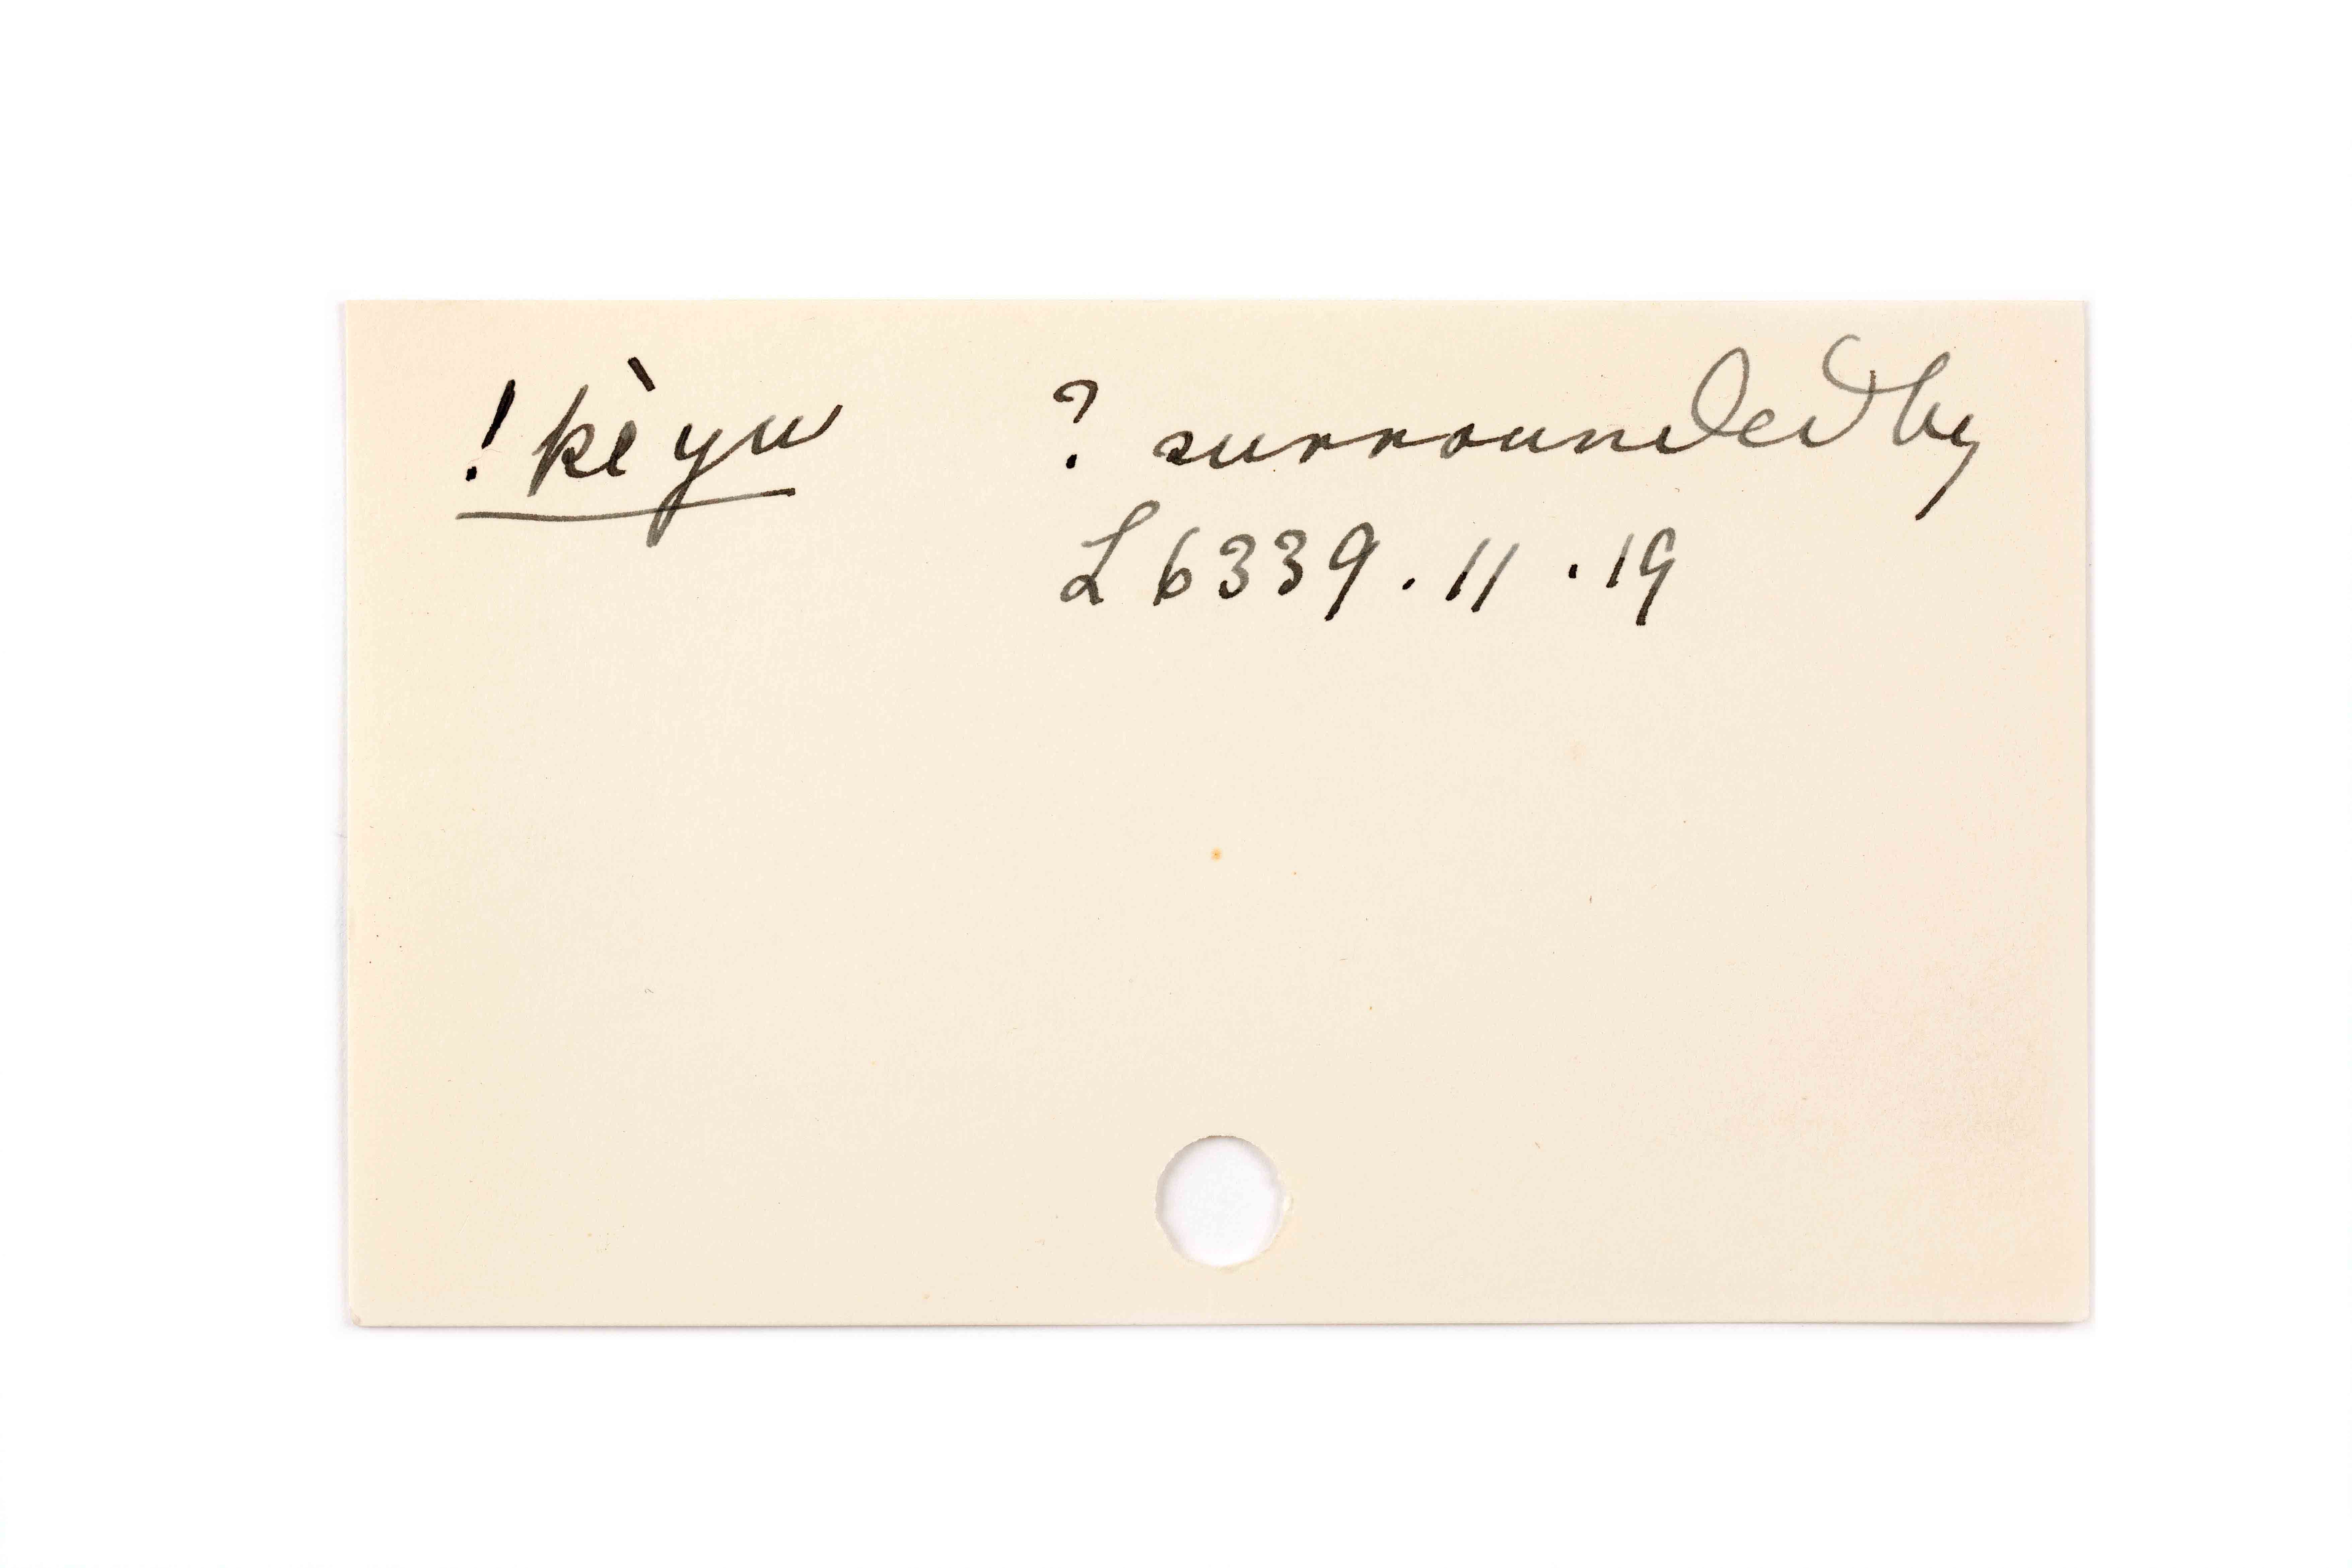 !kèyu ? surrounded by
L 6339 . 11 . 19